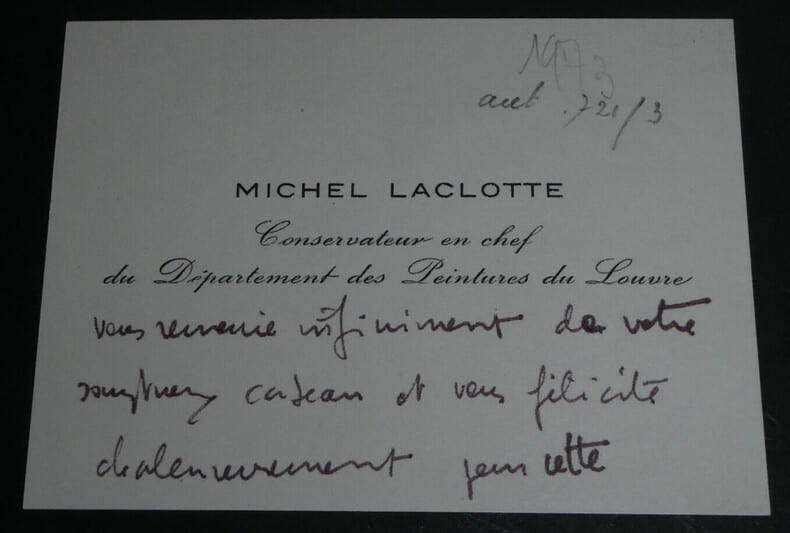 1973
aut .721/3
MICHEL LACLOTTE
Conservateur en chef
du Département des Peintures du Louvre
vous remercie infiniment de votre
somptueux cadeau et vous félicite
chaleureusement pour cette